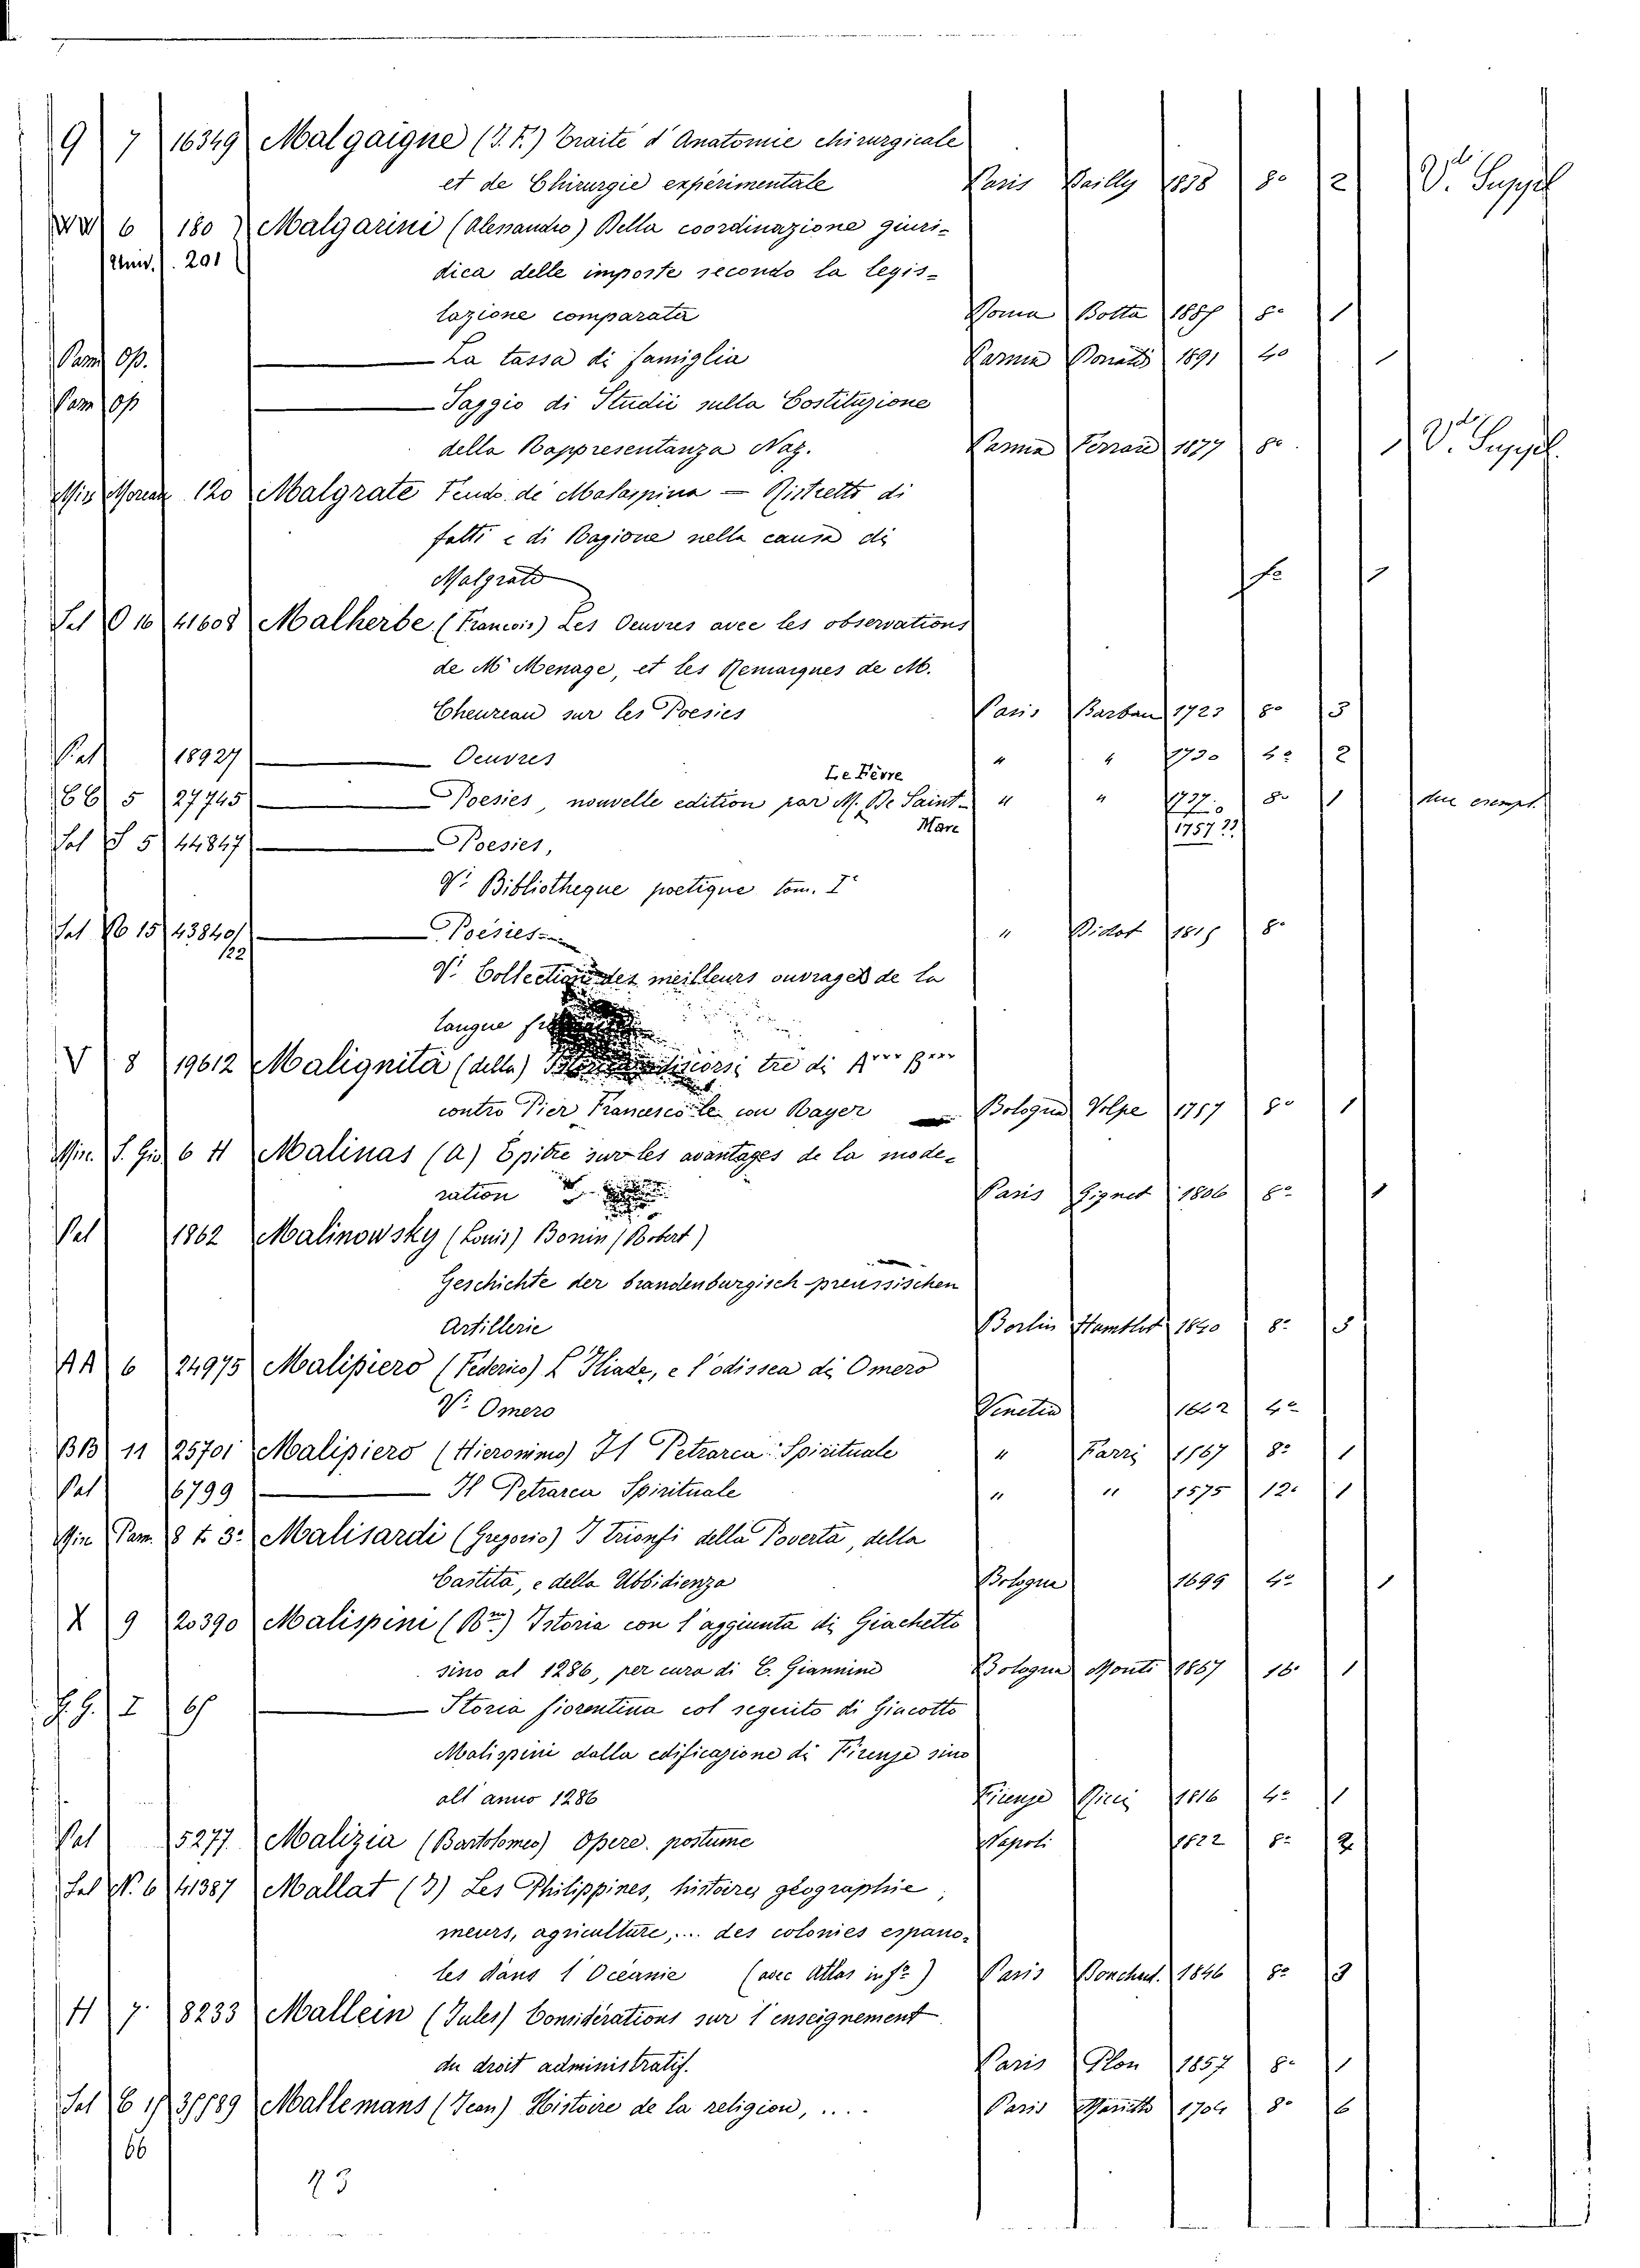 9 7 16349 Malgaigne (J. F.) Traité d'Anatomie chirurgicale
et de Chirurgie expérimentale Paris Bailly 1838 8° 2 V. Suppl
6 180 Malgarini (Alessandro) Della coordinazione giuri-
Univ. 201 dica delle imposte secondo la legis-
lazione comparata Roma Botta 1887 8° 1
Pam Op. La tassa di famiglia Parma Donati 1891 4° 1
Pam Op Saggio di Studii sulla Costituzione
della Rappresentanza Naz. Parma Ferrari 1877 8° 1 V. Suppl.
Mis Moreau 120 Malgrate Feudo di Malaspina — Ristretto di
fatti e di Ragione nella causa di
Malgrate f°
Sal O 16 41608 Malherbe (Francois) Les Oeuvres avec les observations
de M. Menage, et les Remarques de M.
Cheureau sur les Poesies Paris Barbau 1723 8° 3
Pal 18927 Oeuvres " " 1730 2
BB 5 27745 Poesies, nouvelle edition par M. De Saint- Le Fèvre " " 8° 1 due exempl.
Marc 1757 ??
Sal S 5 44847 Poesies,
V. Bibliotheque poetique tom. I
Sal 15 43840/ Poésies " Didot 1815 8°
122
V. Collection des meilleurs ouvrages de la
langue
V 8 19612 Malignità (della) discorsi tre di
contro Pier Francesco le con Bayer Bologna Volpe 1757 8° 1
Misc. S. Gio 6 H Malinas (A) Epitre sur les avantages de la mode-
ration Paris Gignet 1806 8° 1
Pal 1862 Malinowsky (Louis) Bonin (Robert)
Geschichte der brandenburgisch-preussischen
Artillerie Berlin 1840 8° 3
AA 6 24975 Malipiero (Federico) L'Iliade, e l'odissea di Omero
V. Omero Venetia 4°
BB 11 25701 Malipiero (Hieronimo) Il Petrarca Spirituale " Farri 1567 8° 1
Pal 6799 Il Petrarca Spirituale " " 1575 12° 1
Min Pam. 8 t. 3° Malisardi (Gregorio) I trionfi della Poverta, della
Castita, e della Ubbidienza Bologna 1699 4° 1
X 9 20390 Malispini (Rno) Istoria con l'aggiunta di Giachetto
sino al 1286, per cura di C. Giannini Bologna Monti 1867 16° 1
I Storia fiorentina col seguito di Giacotto
Malispini dalla edificazione di Firenze sino
all'anno 1286 Firenze Ricci 1816 4° 1
Pal 5277 Malizia (Bartolomeo) Opere postume Napoli 1822 8° 2
Sal N. 6 41387 Mallat (J) Les Philippines, histoires géographie,
meurs, agriculture, ... des colonies espano-
les dans l'Océanie (avec Atlas in f°) Paris 1846 8° 3
H 7 8233 Mallein (Jules) Considérations sur l'enseignement
du droit administratif. Paris Plon 1857 8° 1
Sal Mallemans (Jean) Histoire de la religion, .... Paris 1704 8° 6